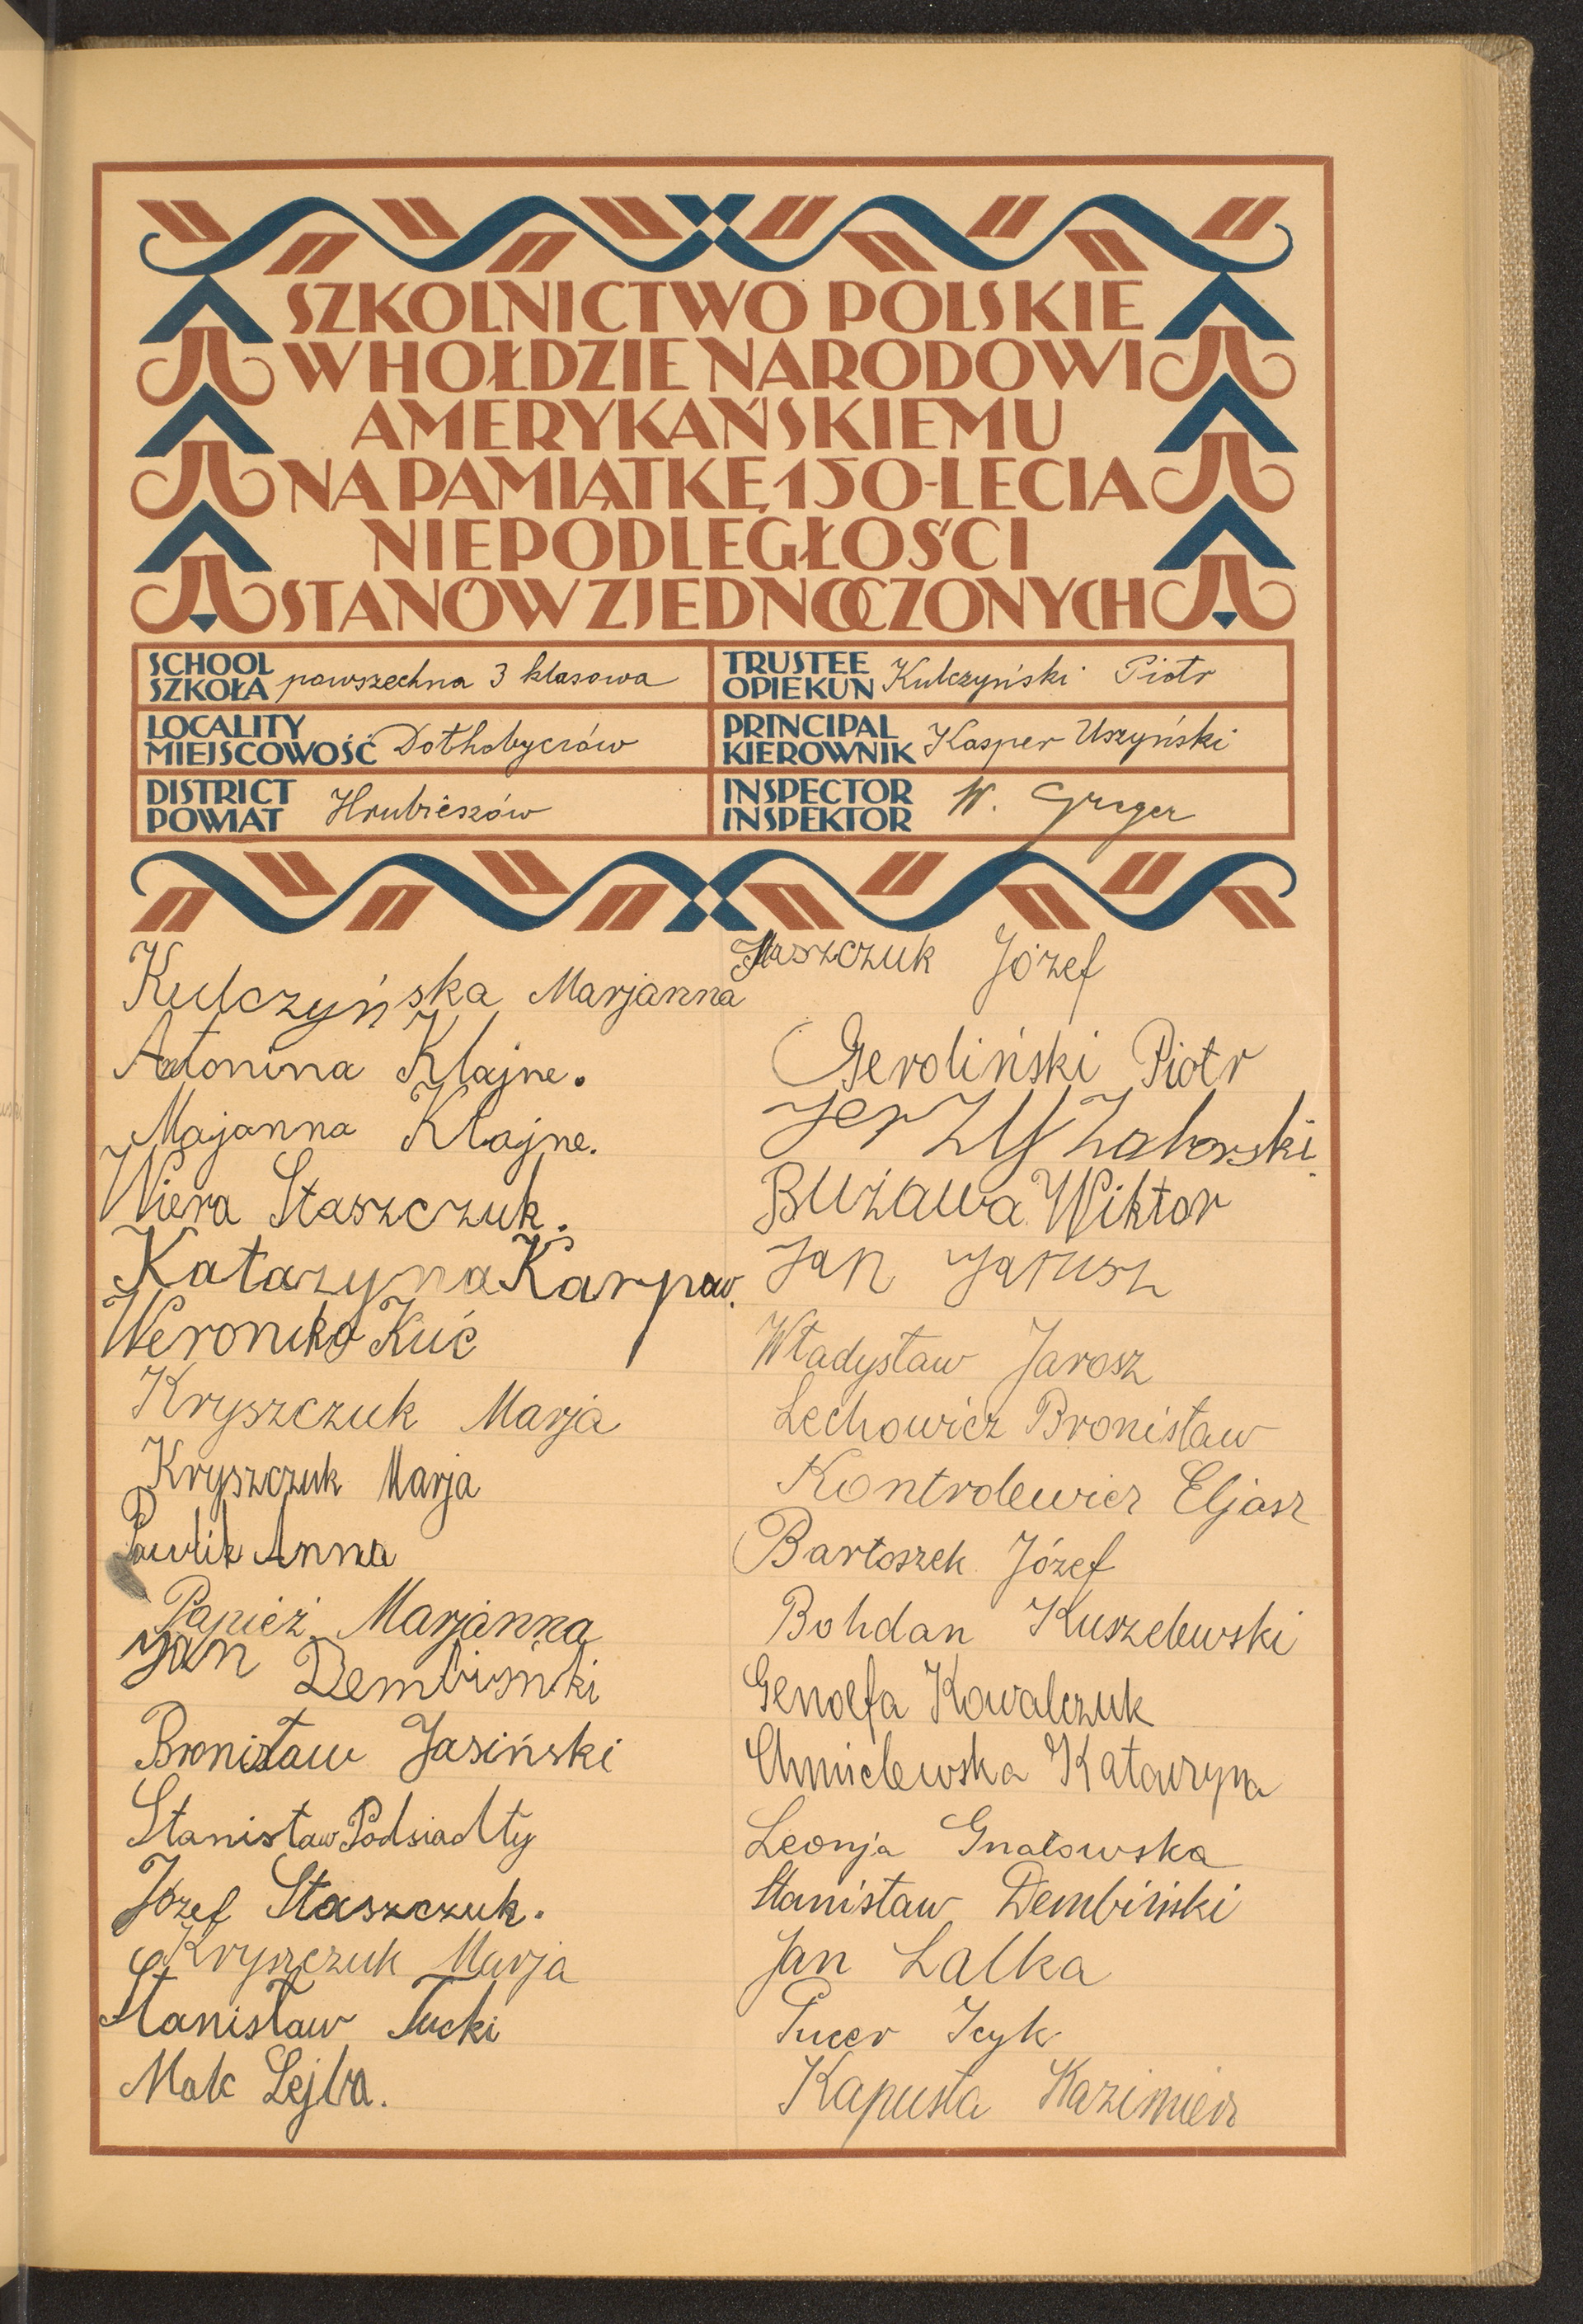 SZKOLNICTWO POLSKIE
W HOŁDZIE NARODOWI
AMERYKAŃSKIEMU
NA PAMIĄTKĘ 150-LECIA
NIEPODLEGŁOŚCI
STANÓW ZJEDNOCZONYCH
SCHOOL
SZKOŁA powszechna 3 klasowa
LOCALITY
MIEJSCOWOŚĆ Dołhobyczów
DISTRICT
POWIAT Hrubieszów
TRUSTEE
OPIEKUN Kulczyński Piotr
PRINCIPAL
KIEROWNIK Kasper Uszyński
INSPECTOR
INSPEKTOR W.
Kulczyńska Marjanna
Antonina Klajne.
Majanna Klajne.
Wiera Staszczuk.
Katazyna Karpow.
Weronika Kuć
Kryszczuk Marja
Kryszczuk Marja
Pawlik Anna
Papież Marjanna
Jan Dembiński
Bronisław Jasiński
Stanisław Podsiadły
Józef Staszczuk.
Kryszczuk Marja
Stanisław Tucki
Mak Lejba.
Józef
Geroliński Piotr
Jerzy Zaborski
Bużawa Wiktor
Jan Jarusz
Władysław Jarosz
Lechowicz Bronisław
Kontrolewicz Eljasz
Bartoszek Józef
Bohdan Kuszelewski
Genoefa Kowalczuk
Chmielewska Katarzyna
Leonja Gnatowska
Stanisław Dembiński
Jan Lalka
Pucer Icyk
Kapusta Kazimierz